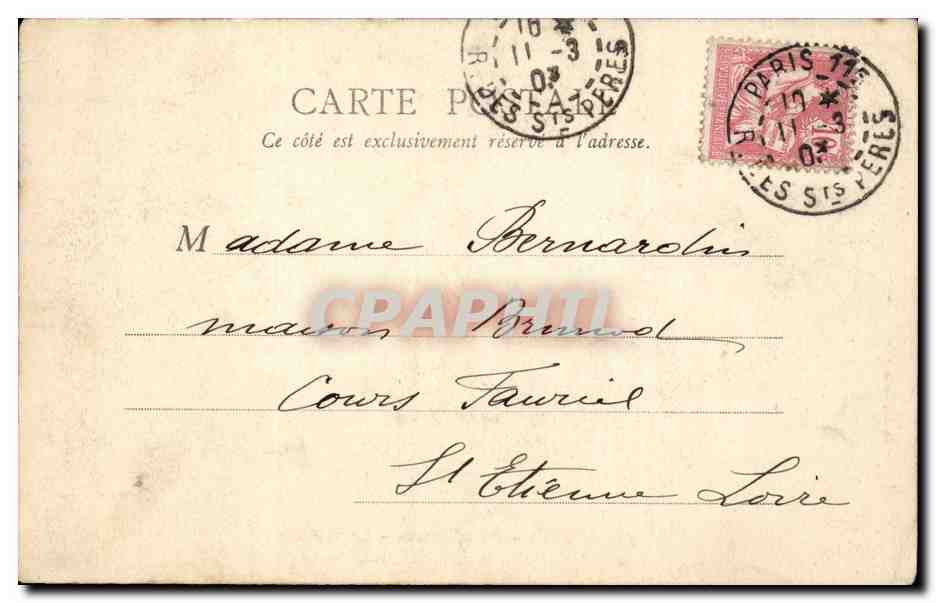 16 *
11 -3
03
R. DES STS PERES
PARIS_115
10 *
11 -3
03
R. DES STS PERES
10
CARTE POSTALE
Ce côté est exclusivement réservé à l'adresse.
Madame Bernardin
CPAPHIL
maison Brunod
Cours Fauriel
St Etienne Loire